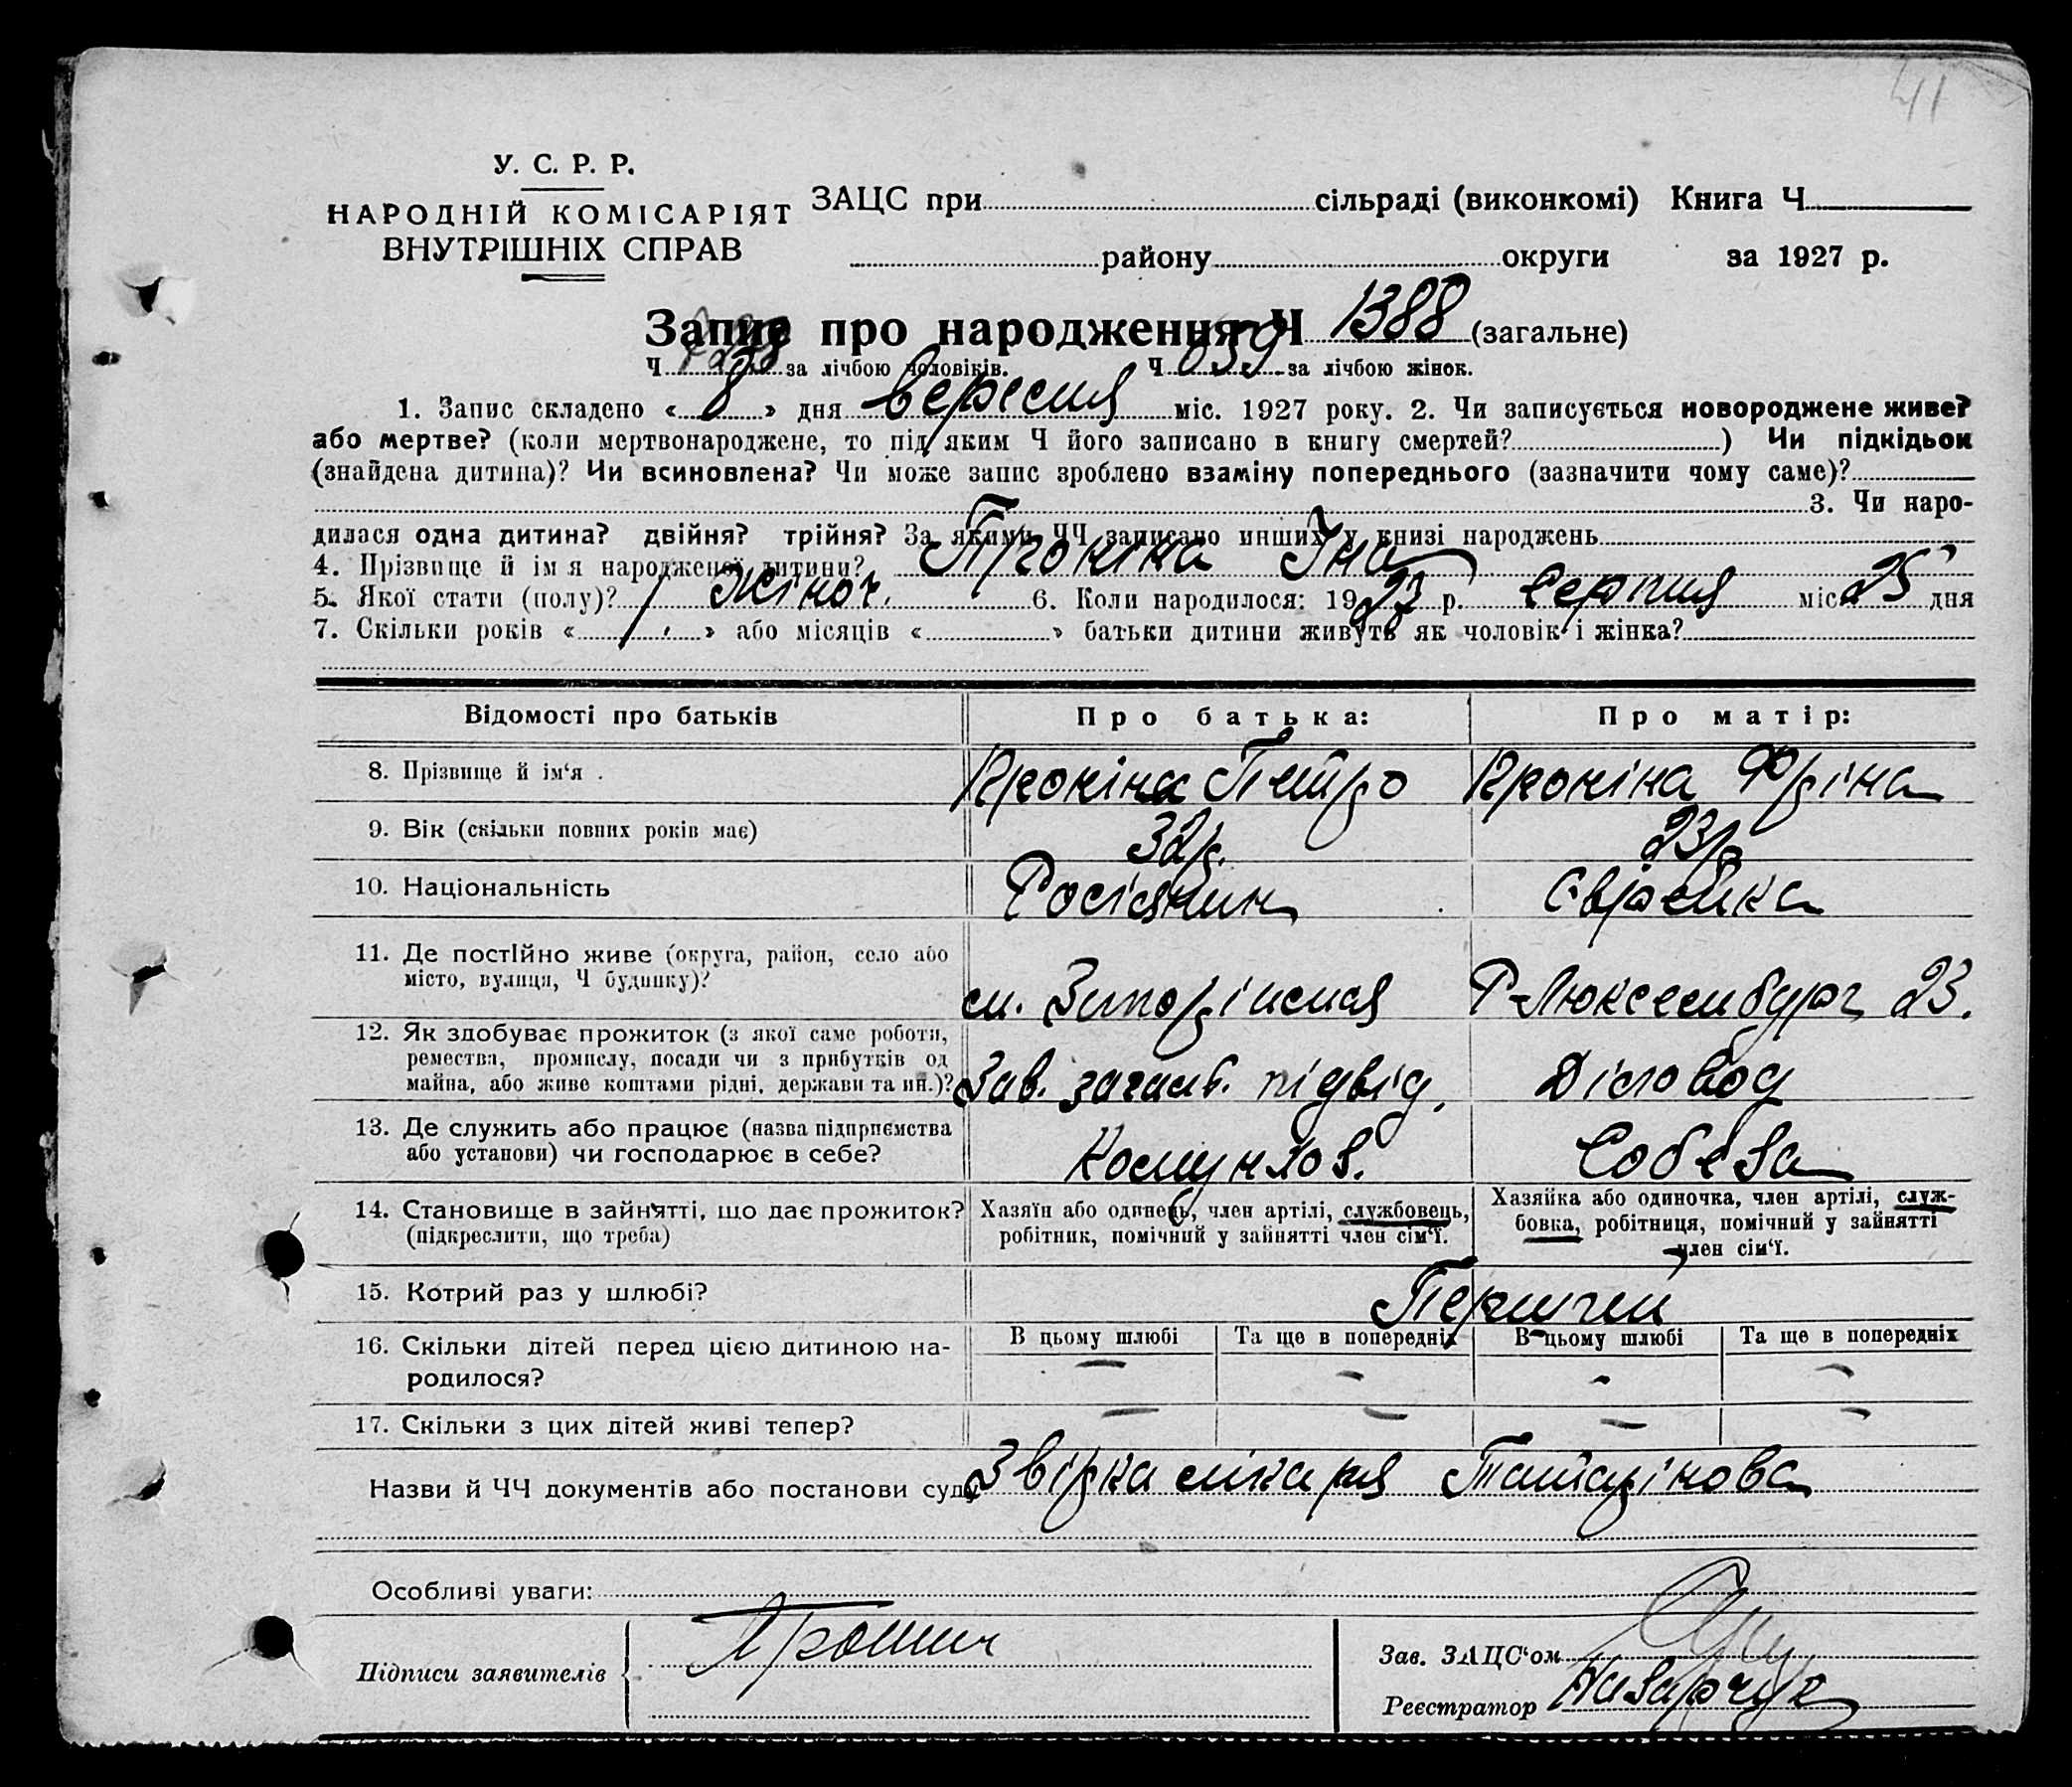 41
У. С. Р. Р.
НАРОДНІЙ КОМІСАРІЯТ
ВНУТРІШНІХ СПРАВ
ЗАЦС при сільраді (виконкомі) Книга Ч
району округи за 1927 р.
Запис про народження Ч 1388 (загальне)
Ч за лічбою чоловіків. Ч 659 за лічбою жінок.
1. Запис складено « 8 » дня вересня міс. 1927 року. 2. Чи записується новороджене живе?
або мертве? (коли мертвонароджене, то під яким Ч його записано в книгу смертей? ) Чи підкідьок
(знайдена дитина)? Чи всиновлена? Чи може запис зроблено взаміну попереднього (зазначити чому саме)?
3. Чи наро-
дилася одна дитина? двійня? трійня? За якими ЧЧ записано инших у книзі народжень
4. Прізвище й ім я народженої дитини? Прокіна Іна
5. Якої стати (полу)? Жіноч. 6. Коли народилося: 1927 р. серпня міс. 25 дня
7. Скільки років « » або місяців « » батьки дитини живуть як чоловік і жінка?
Відомості про батьків Про батька: Про матір:
8. Прізвище й ім‘я . Прокіна Петро Прокіна Фріна
9. Вік (скільки повних років має) 32р. 23р.
10. Національність Росіянин Єврейка
11. Де постійно живе (округа, район, село або
місто, вулиця, Ч будинку)?
м. Р-Люксембург 23.
12. Як здобуває прожиток (з якої саме роботи,
ремества, промислу, посади чи з прибутків од
майна, або живе коштами рідні, держави та ин.)?
Зав. загальн. підвід. Діловод
13. Де служить або працює (назва підприємства
або установи) чи господарює в себе?
Собеза
14. Становище в зайнятті, що дає прожиток?
(підкреслити, що треба)
Хазяїн або одинець, член артілі, службовець,
робітник, помічний у зайнятті член сім‘ї.
Хазяйка або одиночка, член артілі, служ-
бовка, робітниця, помічний у зайнятті
член сім‘ї.
15. Котрий раз у шлюбі? Перший
16. Скільки дітей перед цією дитиною на-
родилося?
В цьому шлюбі Та ще в попередніх В цьому шлюбі Та ще в попередніх
— — - —
17. Скільки з цих дітей живі тепер? — — — —
Назви й ЧЧ документів або постанови суду Звірка лікаря Татарінова
Особливі уваги:
Підписи заявителів
Зав. ЗАЦС‘ом
Реєстратор Назарчук